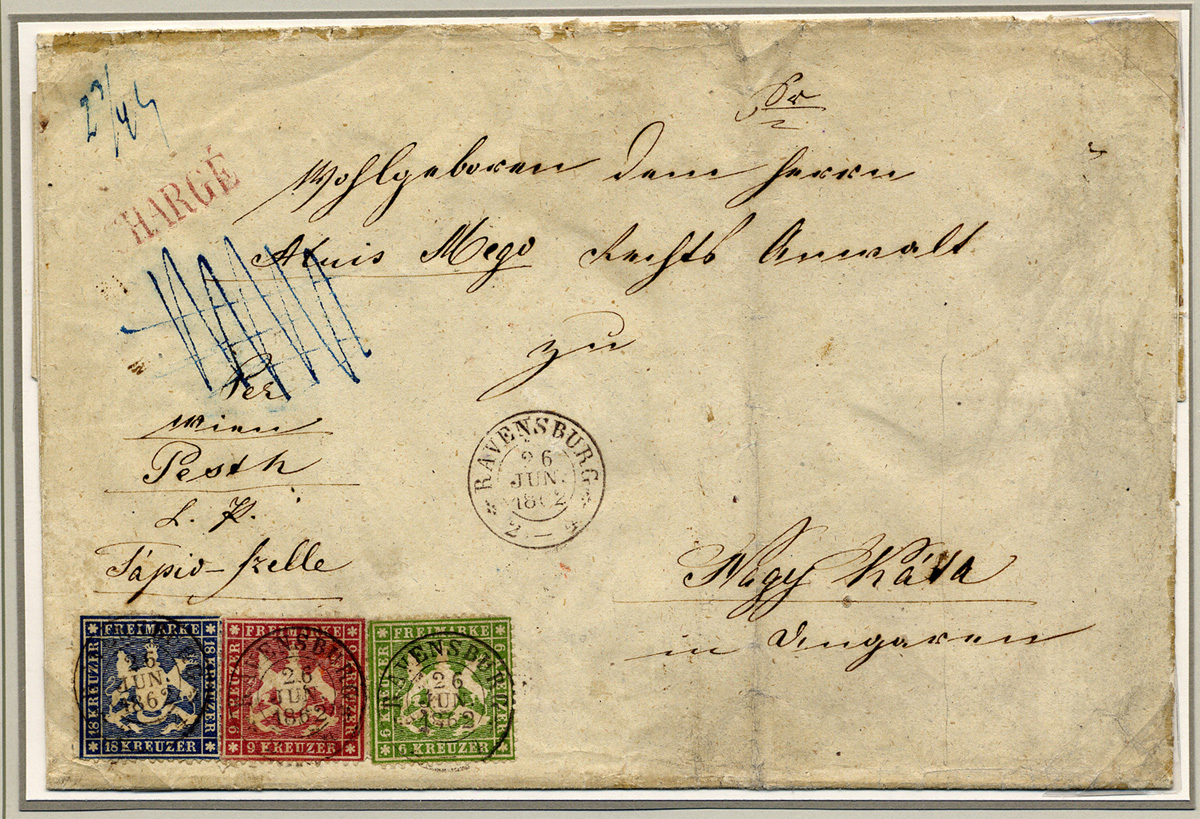 Sr
Wohlgeboren dem Herrn
Aluis Mego Rechts Anwalt
zu
Nagy Káta
in Ungaren
HARGÉ
Per
Wien
Pesth
L. P.
Tápio-Szelle
RAVENSBURG
26
JUN.
1862
2 – 3
FREIMARKE
18 KREUZER
18 KREUZER
18 KREUZER
26
JUN.
1862
FREIMARKE
9 KREUZER
9 KREUZER
9 KREUZER
RAVENSBURG
26
JUN
1862
FREIMARKE
6 KREUZER
6 KREUZER
6 KREUZER
RAVENSBURG
26
JUN
1862